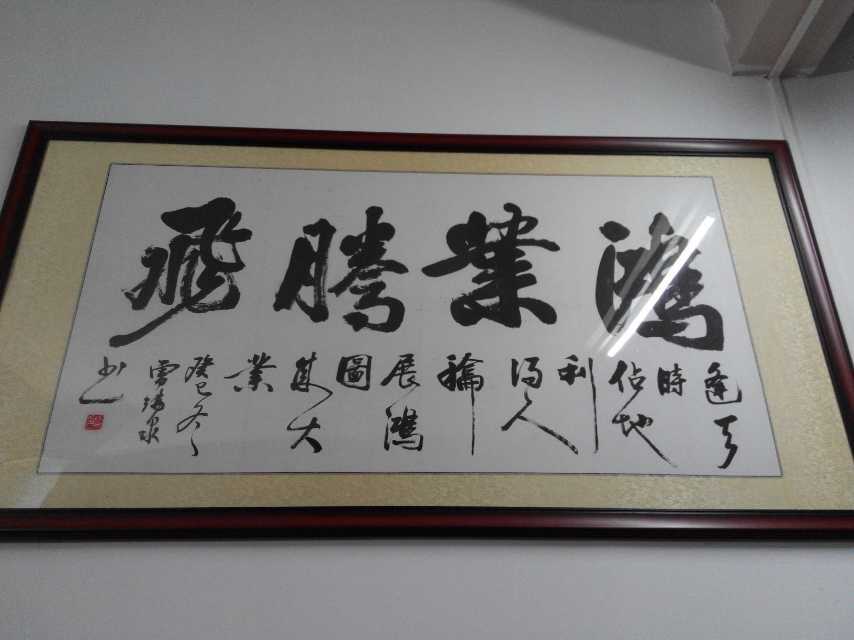 鴻業騰飛
逢天
時
佔地
利
得人
和
展鴻
圖
成大
業
癸巳冬
曹瑞泉
书